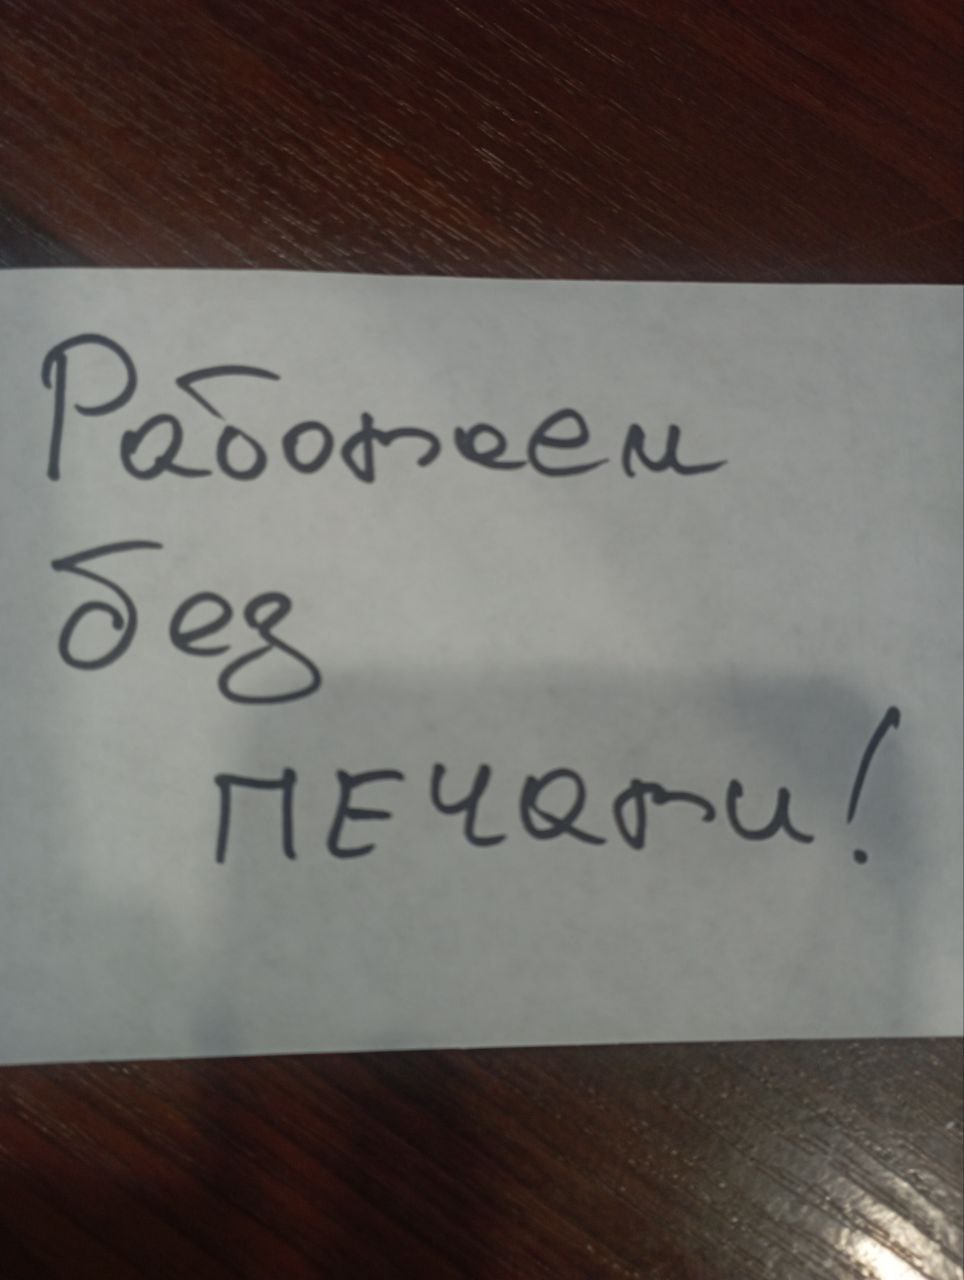 Работаем
без
ПЕЧАти!